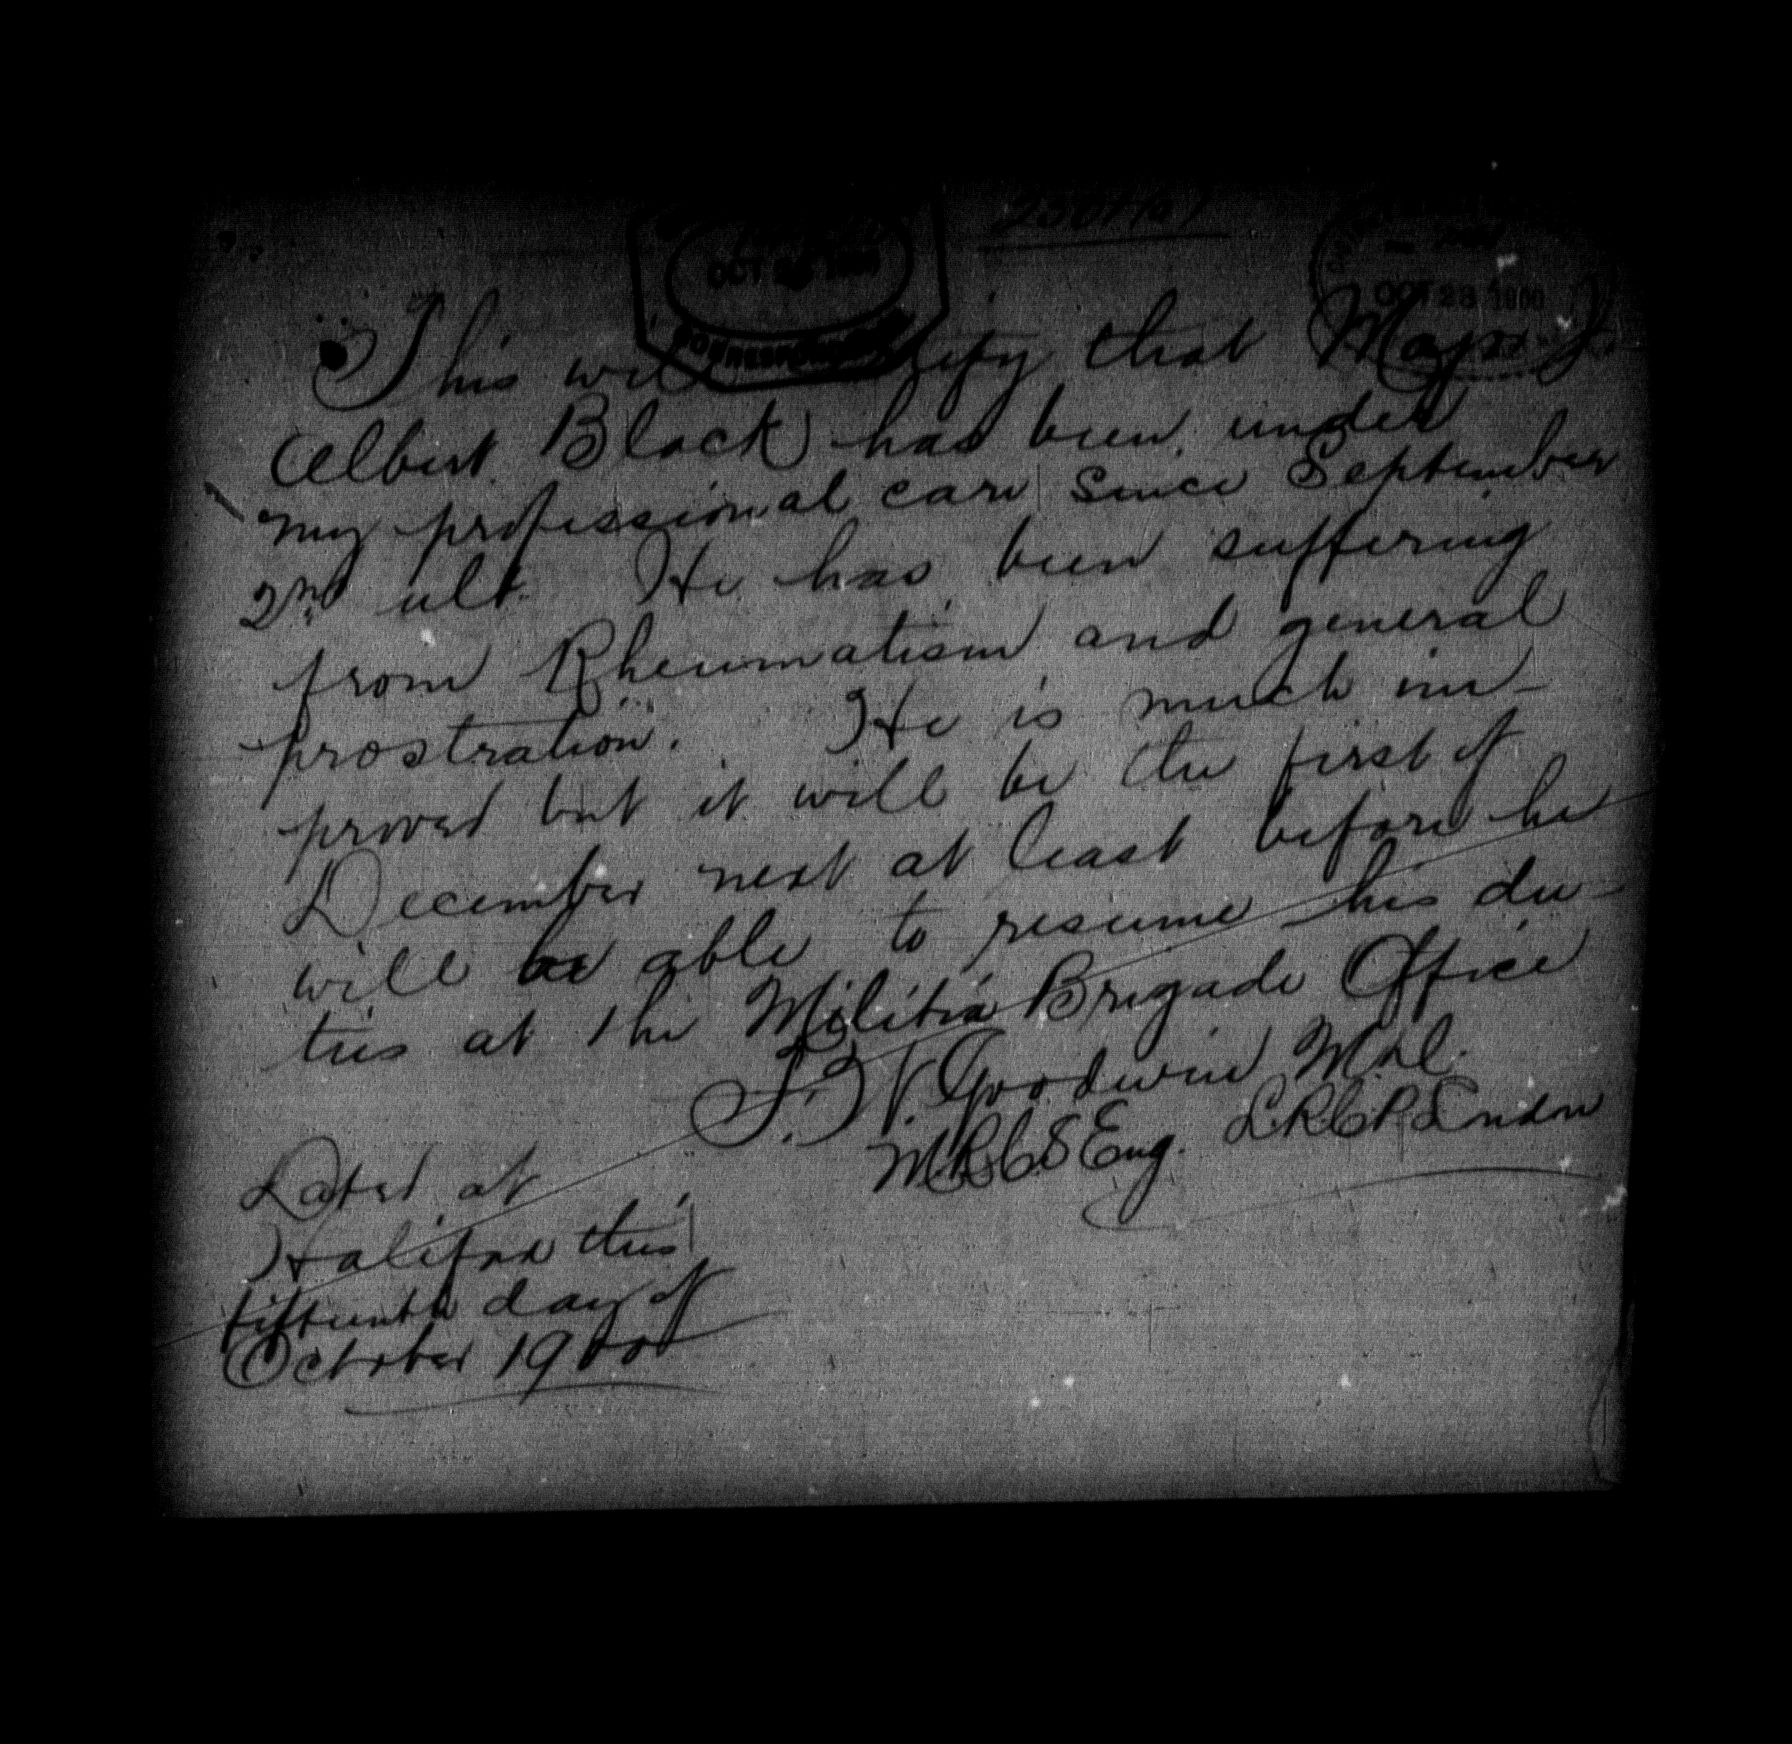 OCT 1900
OCT 23 1900
CORRESPONDENCE
This will certify that Major J.
Albert Black has been under
my professional care since September
2nd ult. He has been suffering
from Rheumatism and general
prostration. He is much im-
proved but it will be the first of
December next at least before he
will be able to resume his du-
ties at the Militia Brigade Office
F. W. Goodwin M.D.
M.R.C.S Eng. L.R.C.P. London
Dated at
Halifax this
fifteenth day of
October 1900